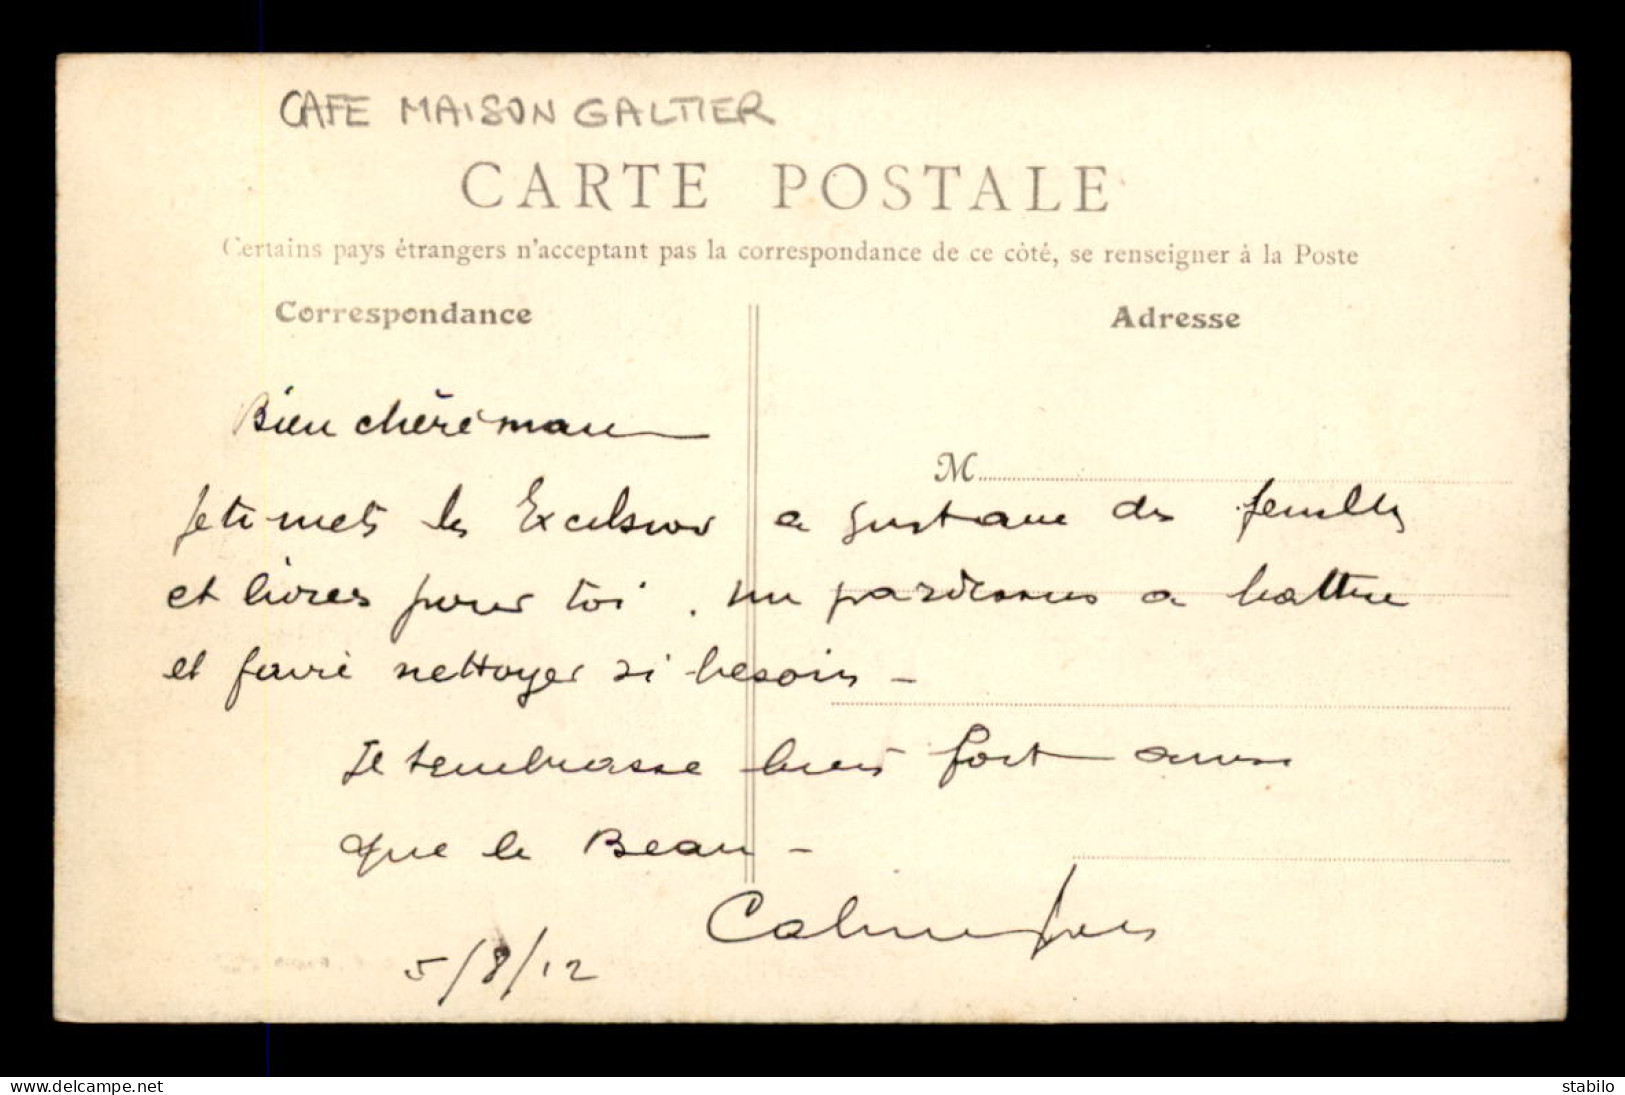 CAFE MAISON GALTIER
CARTE POSTALE
Certains pays étrangers n'acceptant pas la correspondance de ce côté, se renseigner à la Poste
Correspondance
Adresse
Bien chère maman
M
Je te mets les Excelsior a Gustave des feuilles
et livres pour toi. un pardessus a battre
et faire nettoyer si besoin -
Je tembrasse bien fort ainsi
que le Beau -
5/8/12
www.delcampe.net
stabilo